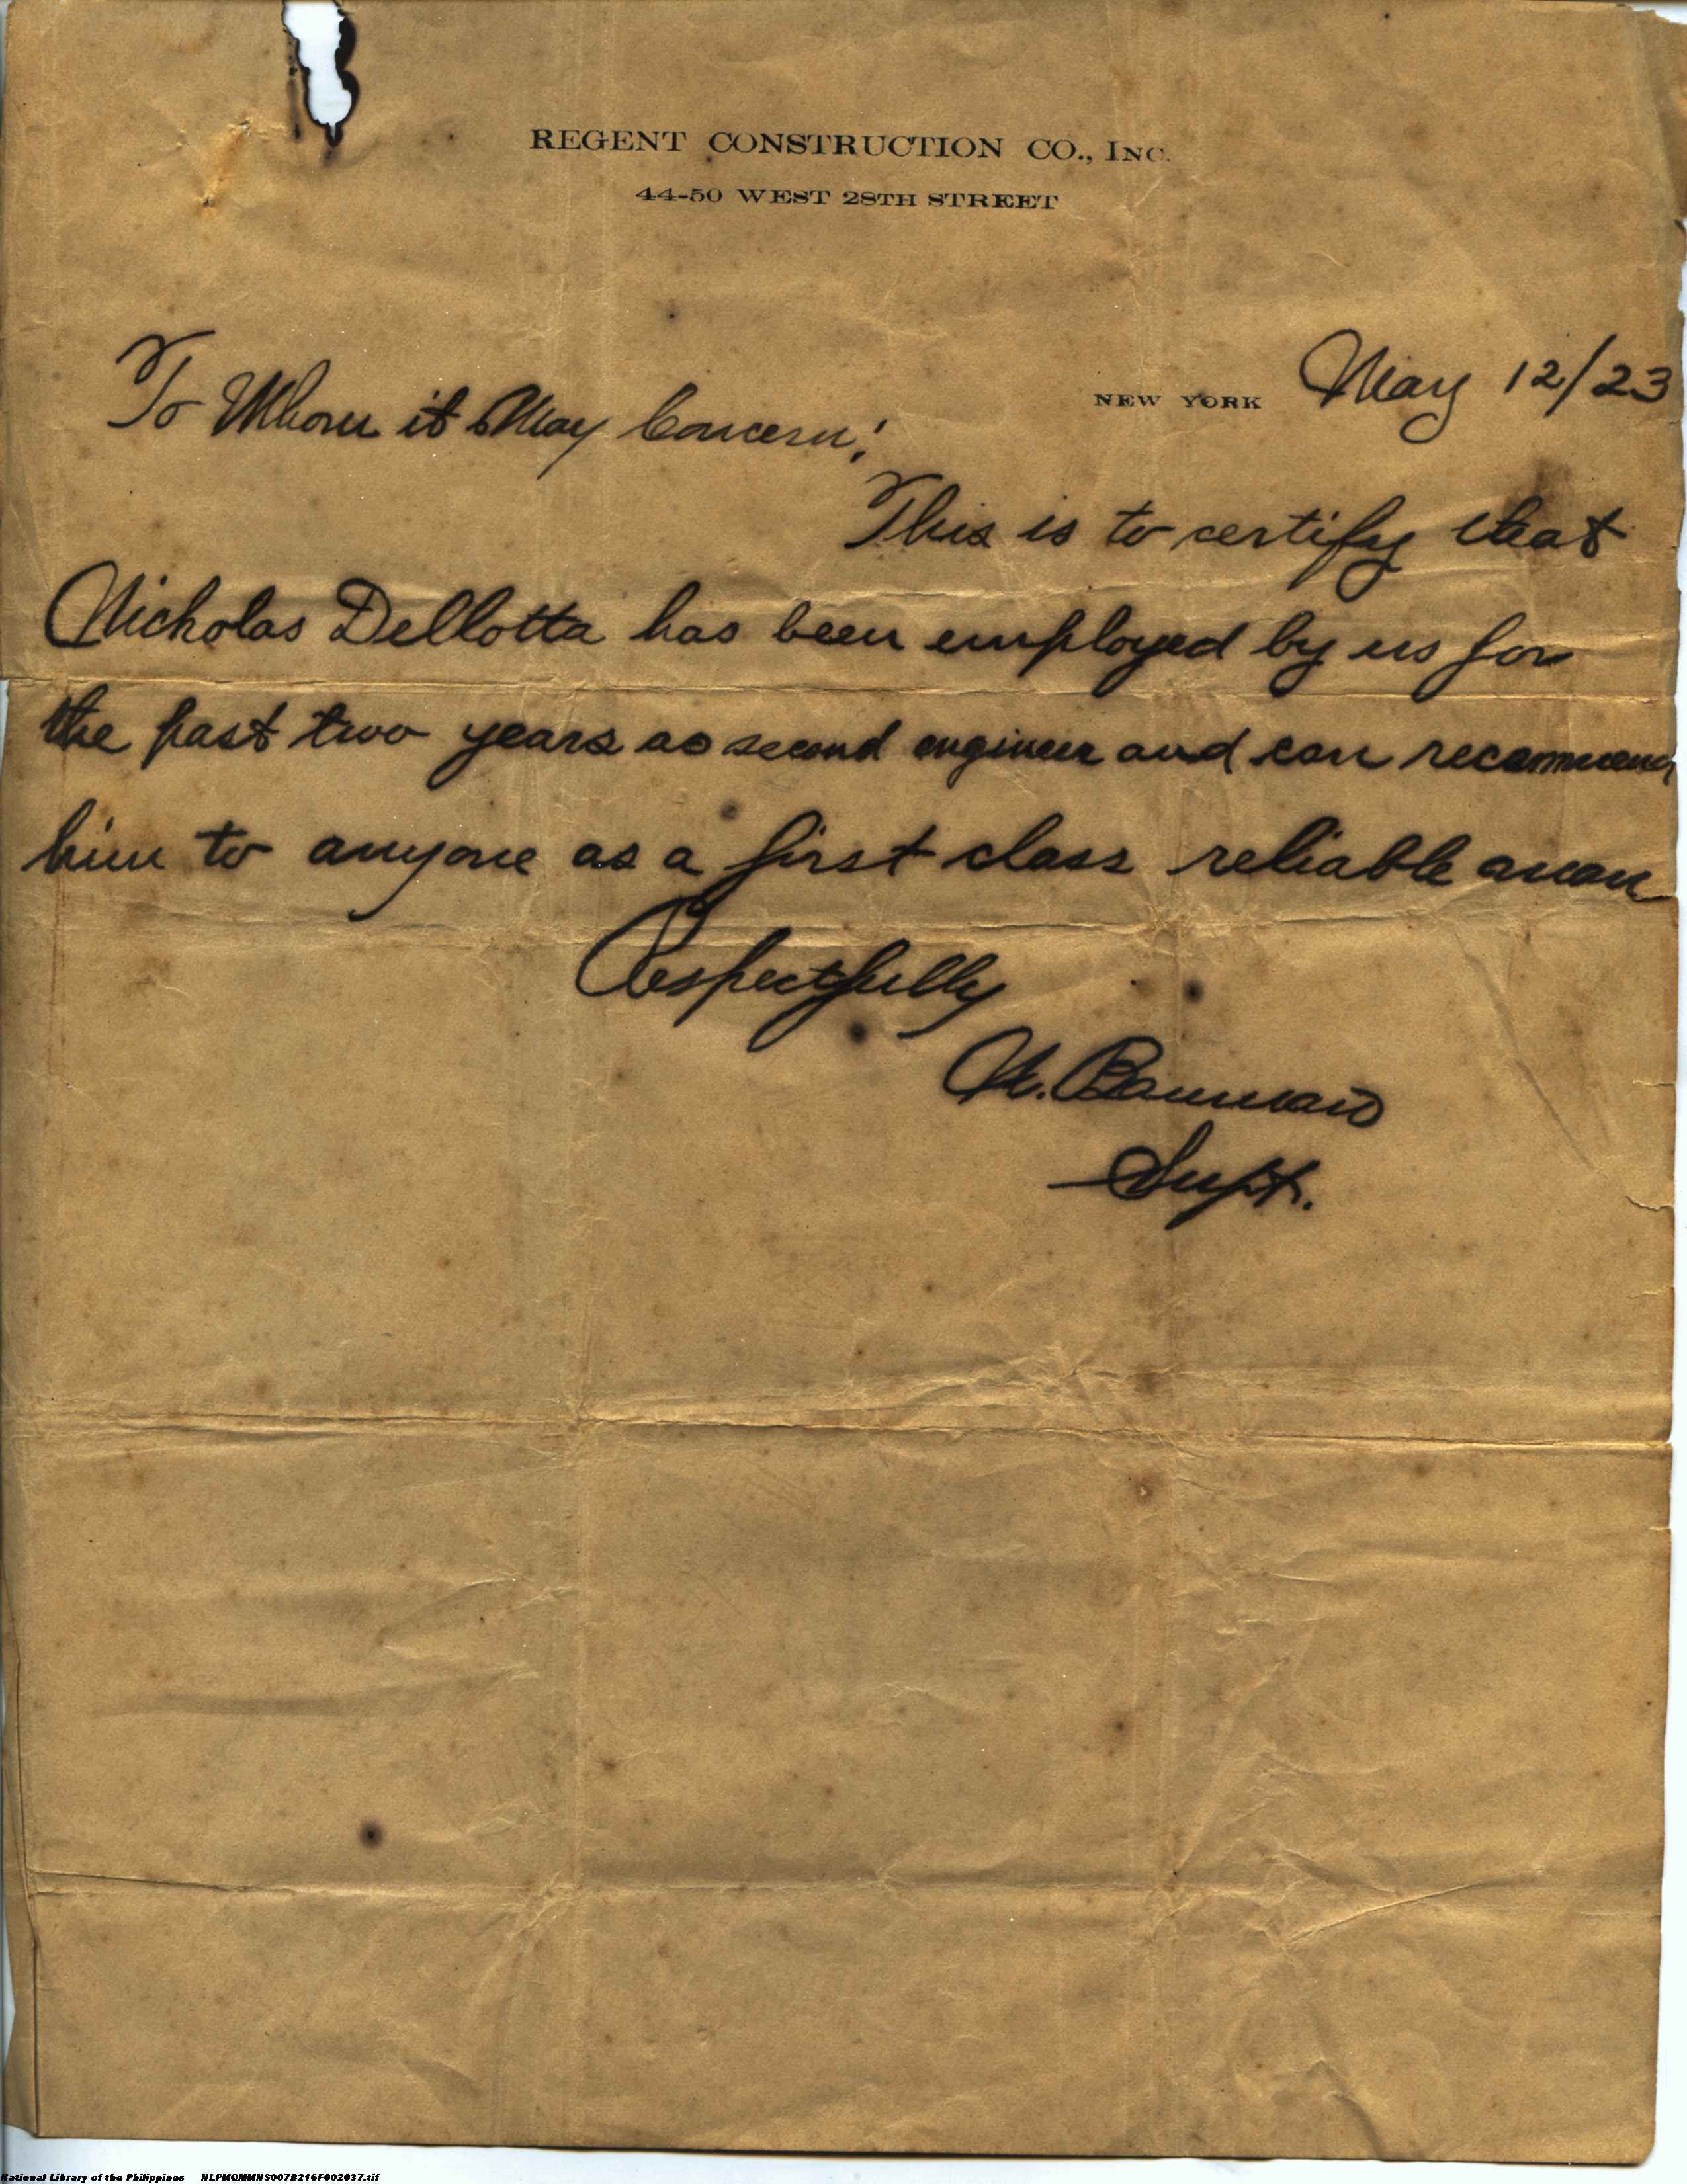 REGENT CONSTRUCTION CO., INC.
44-50 WEST 28TH STREET
NEW YORK May 12/23
To Whom it May Concern:
This is to certify that
Nicholas Dellotta has been employed by us for
the past two years as second engineer and can recommend
him to anyone as a first class reliable man
Respectfully
Supt.
National Library of the Philippines NLPMQMMNS007B216F002037.tif